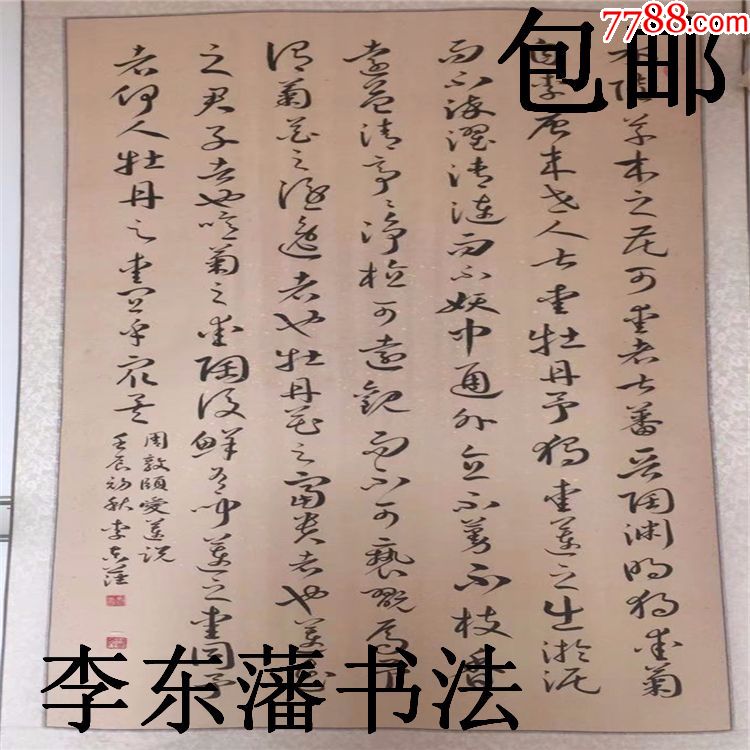 7788.com
包邮
水陸草木之花可愛者甚蕃晋陶渊明独愛菊
自李唐来世人甚愛牡丹予独愛蓮之出淤泥
而不染濯清漣而不妖中通外直不蔓不枝香
遠益清亭亭净植可遠觀而不可褻翫焉予
謂菊花之隐逸者也牡丹花之富貴者也蓮花
之君子者也噫菊之愛陶後鲜有聞蓮之愛同予
者何人牡丹之愛宜乎眾矣
周敦頤愛蓮説
壬辰初秋李东藩
李东藩书法